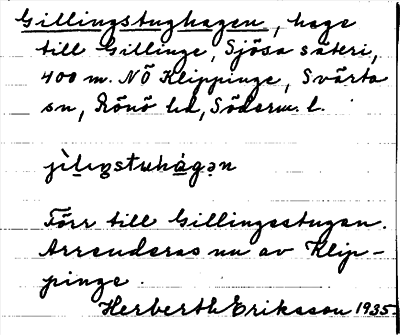 Gillingstughagen, hage
till Gillinge, Sjösa säteri,
400 m. NÖ Klippinge, Svärta
sn, Rönö hd, Söderm. l.
jìlıŋstuhágən
Förr till Gillingestugan.
Arrenderas nu av Klip-
pinge.
Herberth Eriksson 1935.